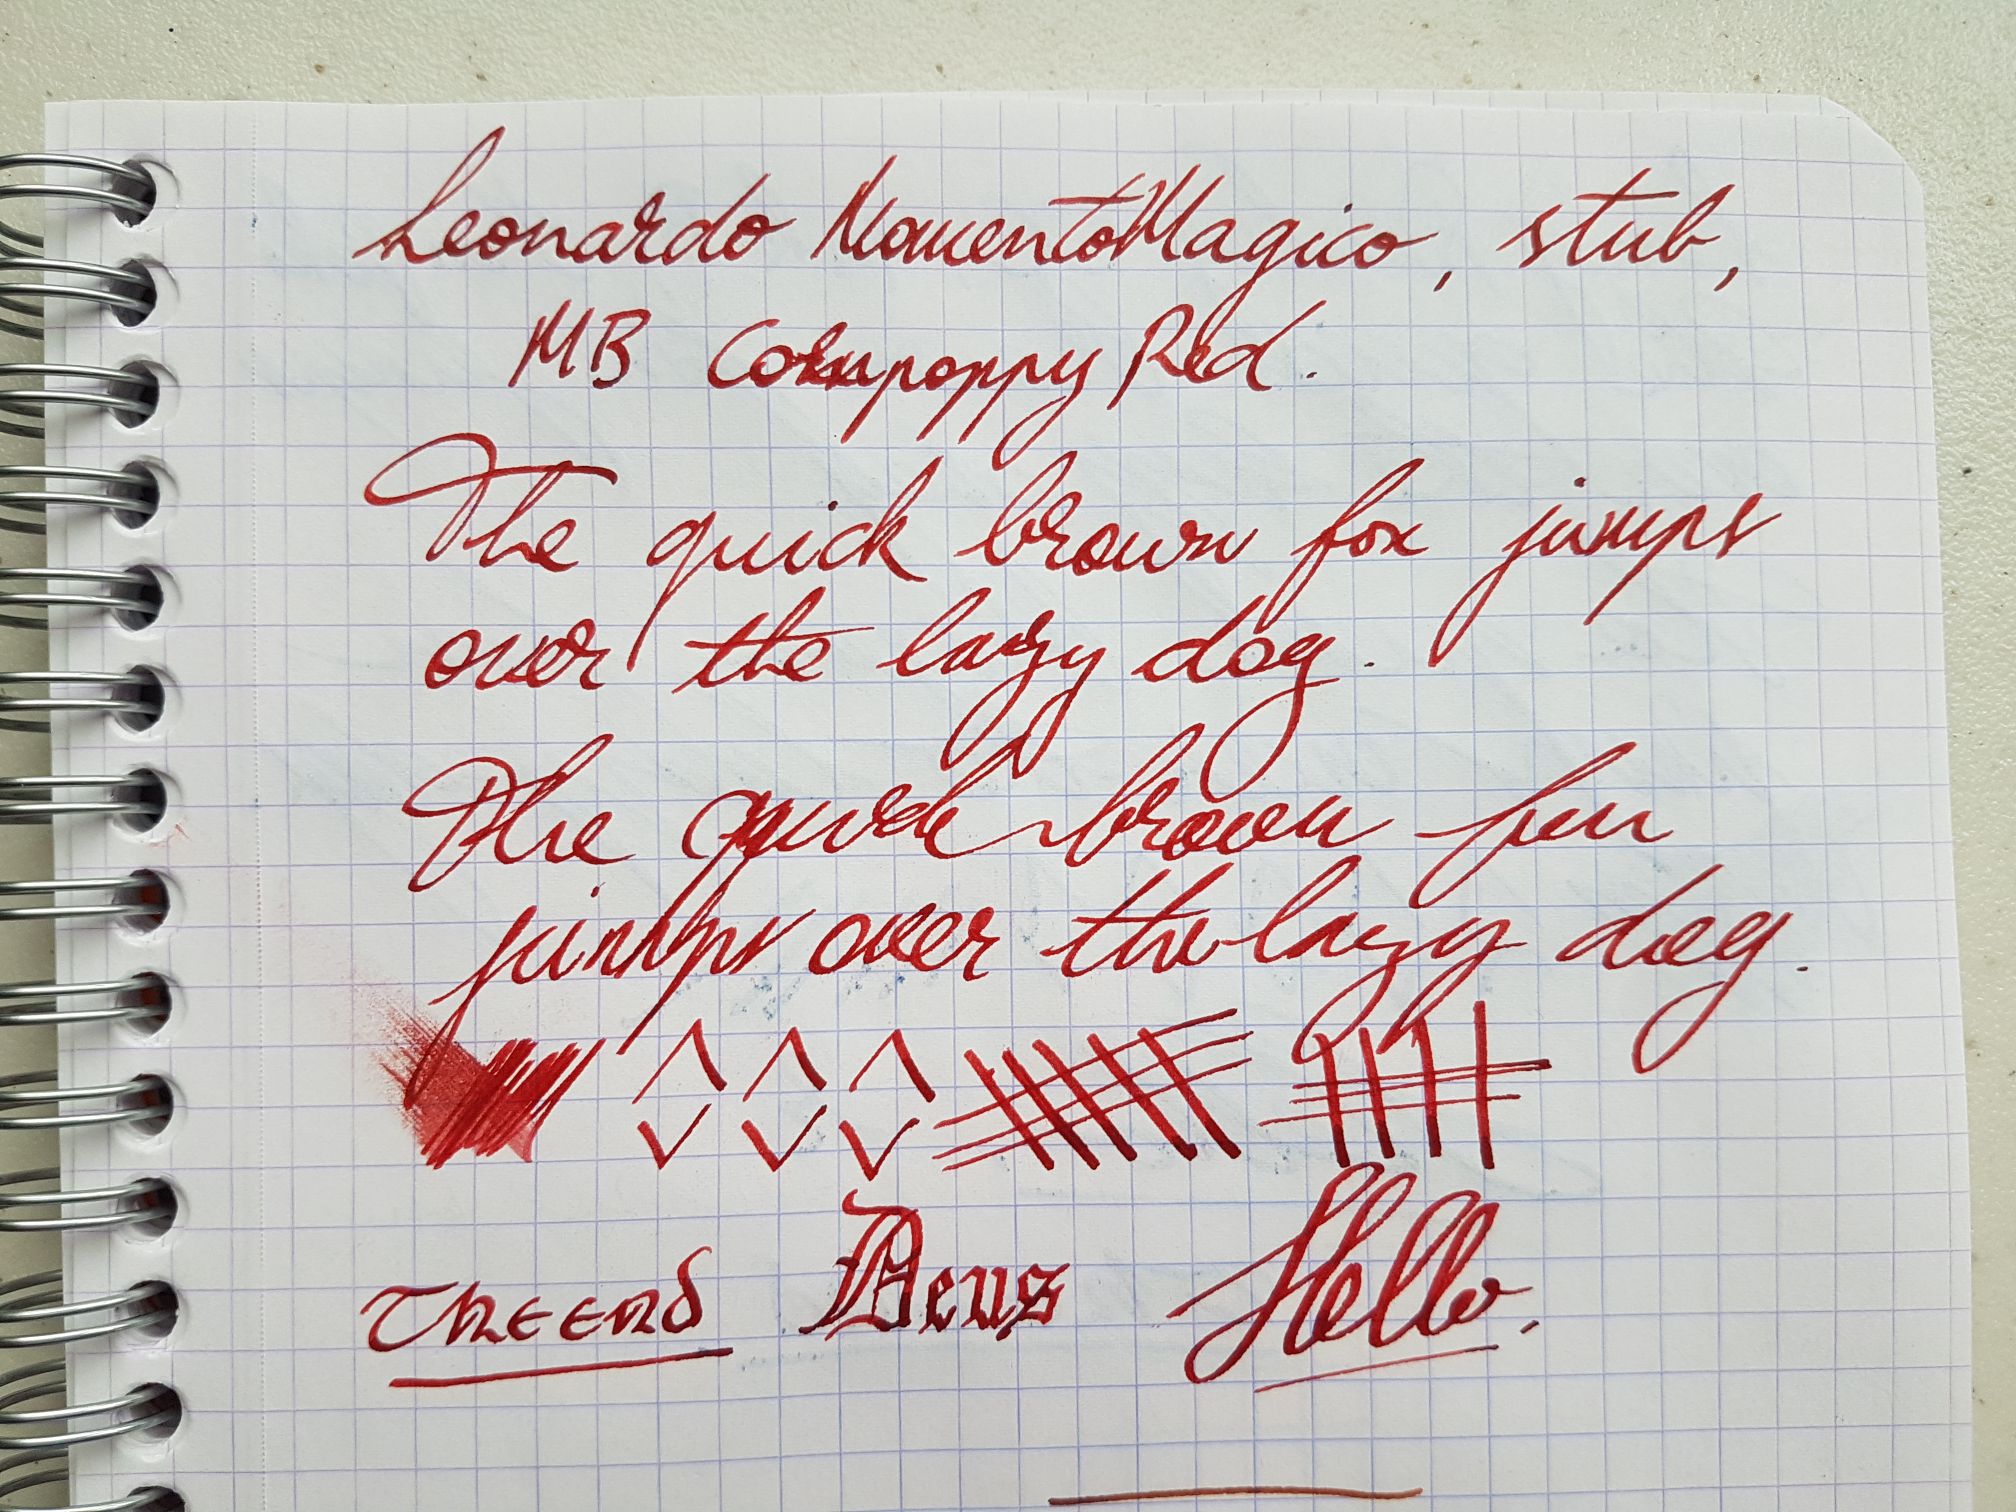 Leonardo MomentoMagico, stub,
MB Cornpoppy Red.
The quick brown fox jumps
over the lazy dog.
The quick brown fox
jumps over the lazy dog.
Deus Hello.